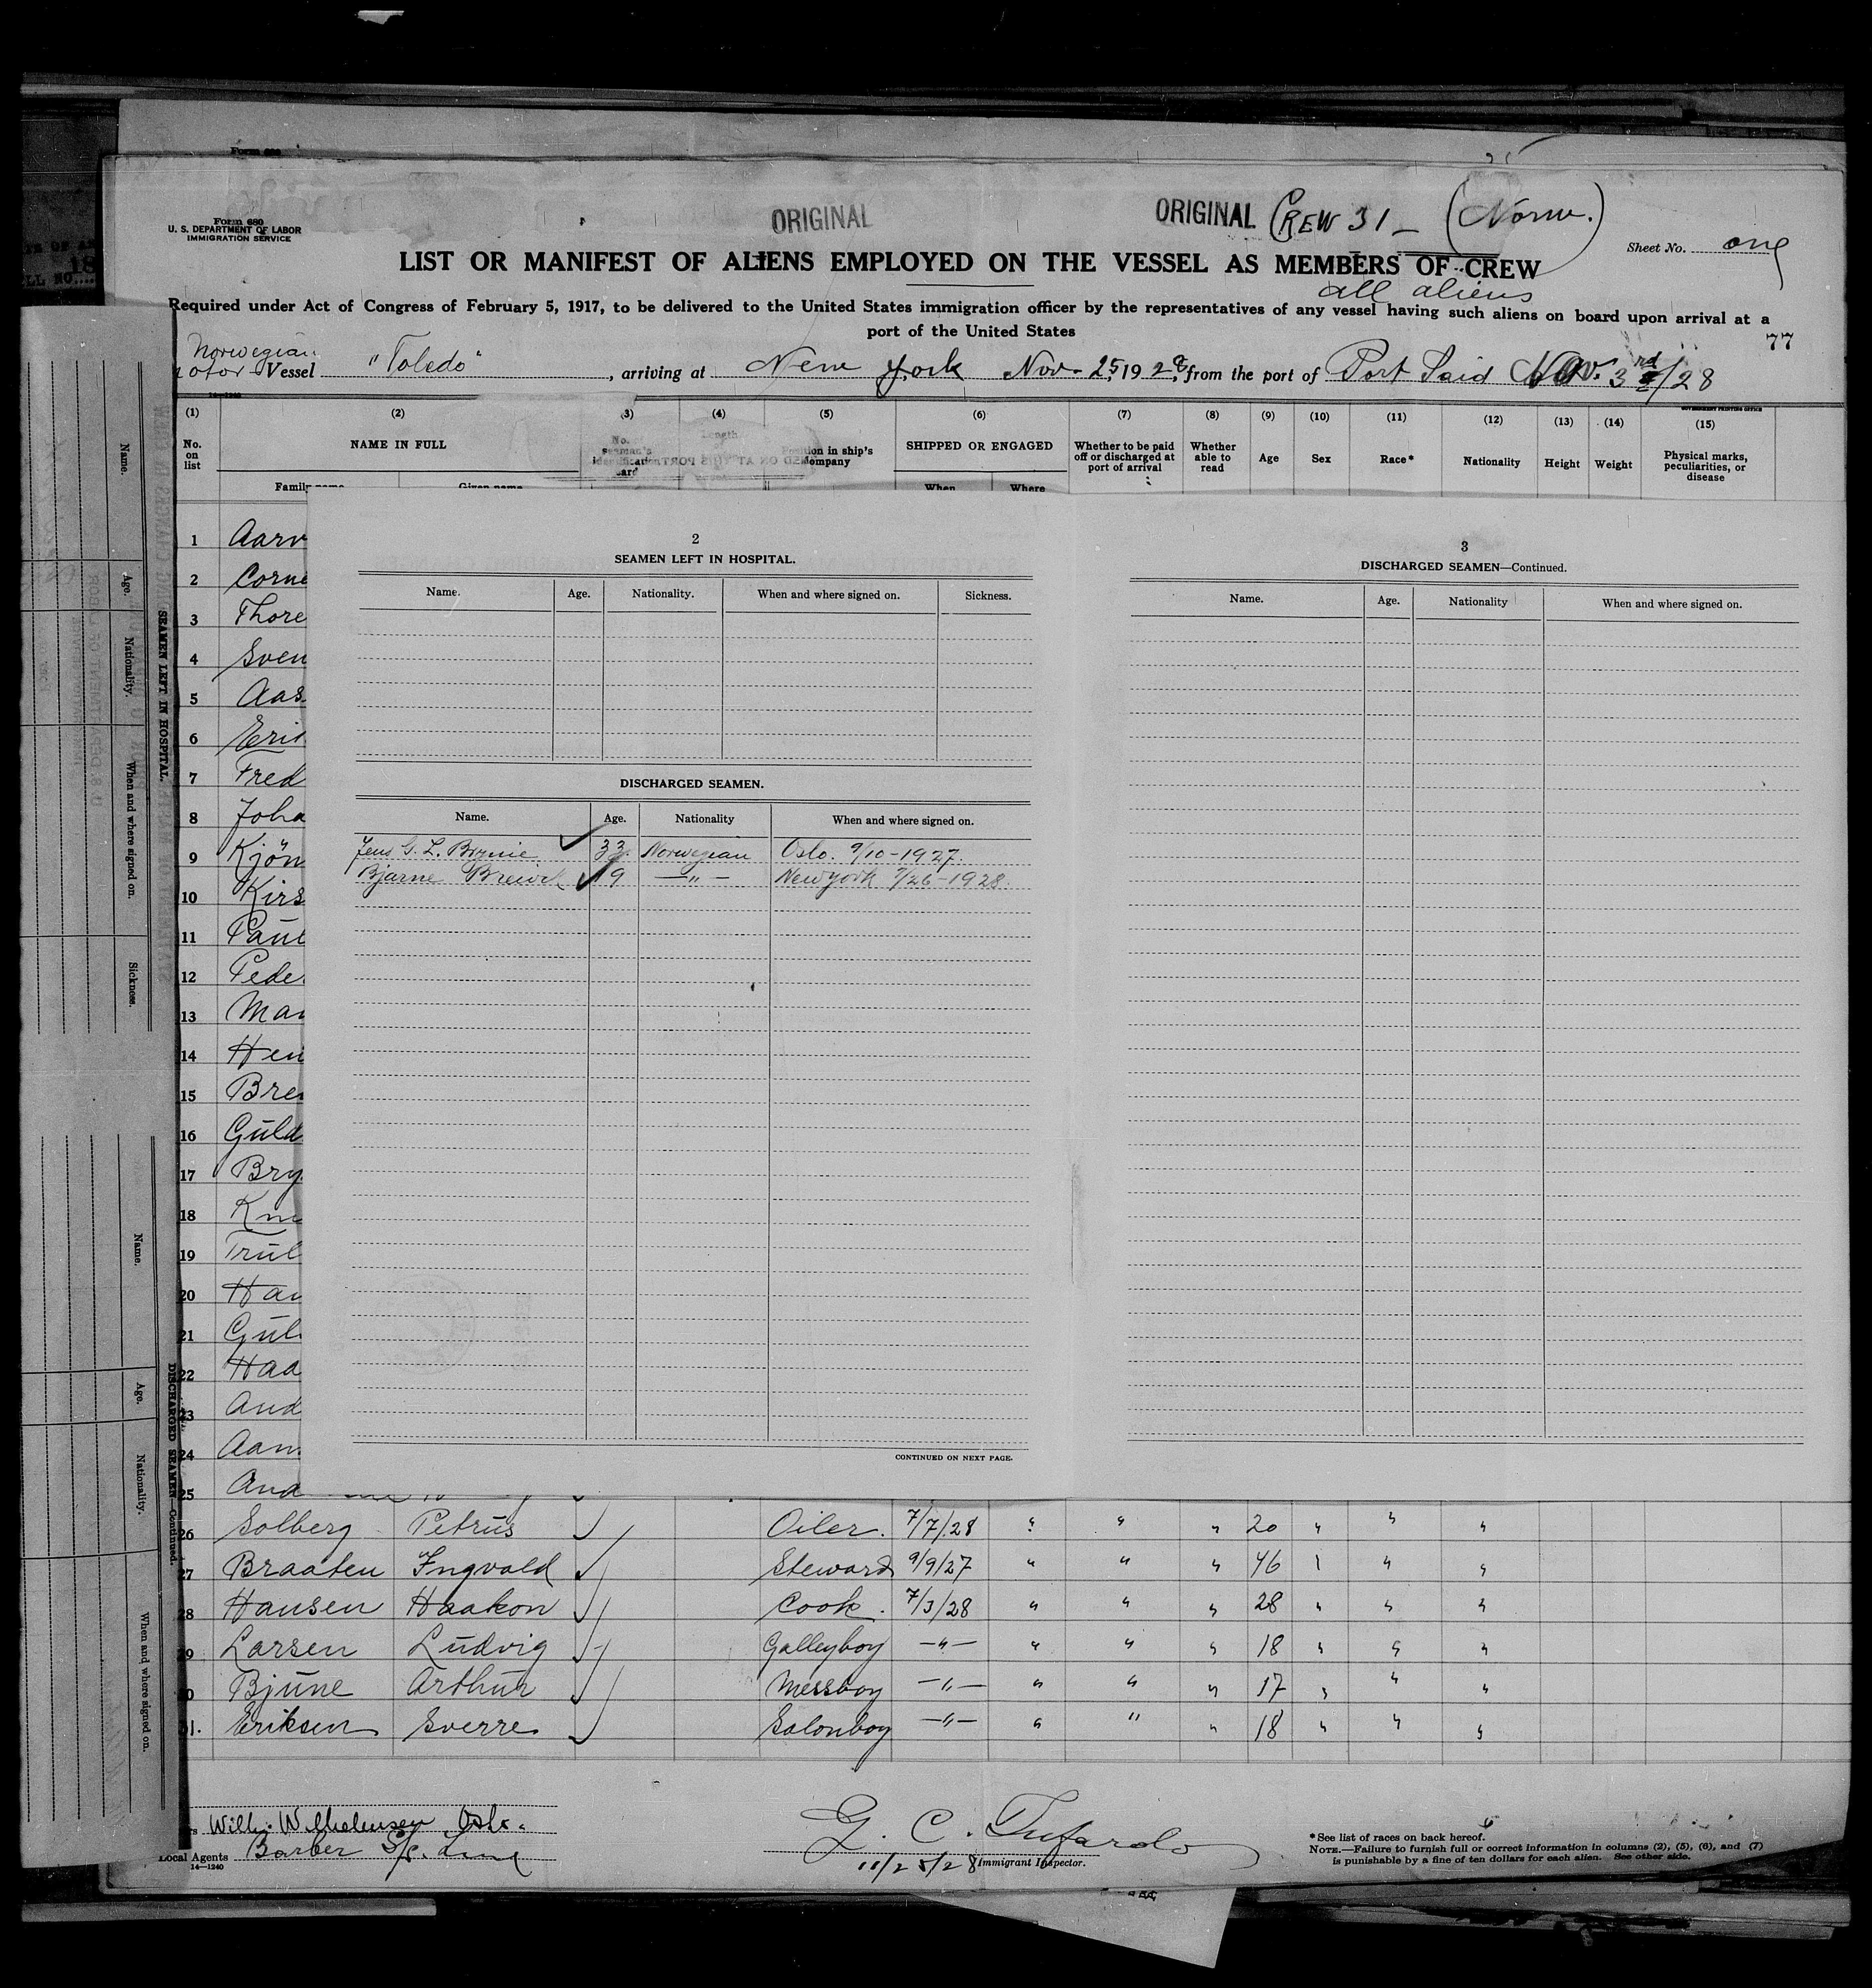 Form 680
U. S. DEPARTMENT OF LABOR
IMMIGRATION SERVICE
ORIGINAL
ORIGINAL Crew 31 — (Norw.)
Sheet No. one
LIST OR MANIFEST OF ALIENS EMPLOYED ON THE VESSEL AS MEMBERS OF CREW
all aliens
Required under Act of Congress of February 5, 1917, to be delivered to the United States immigration officer by the representatives of any vessel having such aliens on board upon arrival at a
port of the United States
77
Norwegian
otor Vessel "Toledo", arriving at New York Nov. 25, 1928, from the port of Port Said Nov. 3rd/28
(1) (2) (3) (4) (5) (6) (7) (8) (9) (10) (11) (12) (13) (14) (15)
GOVERNMENT PRINTING OFFICE
No. on list
NAME IN FULL
Length
Position in ship's company
SHIPPED OR ENGAGED
Whether to be paid off or discharged at port of arrival
Whether able to read
Age
Sex
Race*
Nationality
Height
Weight
Physical marks, peculiarities, or disease
Family name Given name When Where
1 Aarv
2 Corne
3 Thore
4 Sven
5 Aas
6 Erik
7 Fred
8 Joha
9 Kjön
10 Kirs
11 Paul
12 Pede
13 Mar
14 Hen
15 Bre
16 Guld
17 Bry
18 Kn
19 Trul
20 Han
21 Gul
22 Haa
23 And
24 Aan
25 And
2
SEAMEN LEFT IN HOSPITAL.
Name. Age. Nationality. When and where signed on. Sickness.
DISCHARGED SEAMEN.
Name. Age. Nationality When and where signed on.
Jens G. L. Brynie 33 Norwegian Oslo. 9/10-1927.
Bjarne Brewik 19 —"— New York 7/26-1928.
CONTINUED ON NEXT PAGE.
3
DISCHARGED SEAMEN—Continued.
Name. Age. Nationality When and where signed on.
26 Solberg Petrus Oiler. 7/7/28 " " " 20 " " "
27 Braaten Ingvald Steward 9/9/27 " " " 46 " " "
28 Hansen Haakon Cook. 7/3/28 " " " 28 " " "
29 Larsen Ludvig Galleyboy —"— " " " 18 " " "
30 Bjune Arthur Messboy —"— " " " 17 " " "
31. Eriksen Sverre Salonboy —"— " " " 18 " " "
Wilh. Wilhelmsen Oslo.
Local Agents Barber S/S. Line
14—1240
G. C. Tufarolo
11/25/28 Immigrant Inspector.
*See list of races on back hereof.
NOTE.—Failure to furnish full or correct information in columns (2), (5), (6), and (7)
is punishable by a fine of ten dollars for each alien. See other side.
SEAMEN LEFT IN HOSPITAL.
Name. Age. Nationality. When and where signed on. Sickness.
DISCHARGED SEAMEN—Continued.
Name. Age. Nationality. When and where signed on.